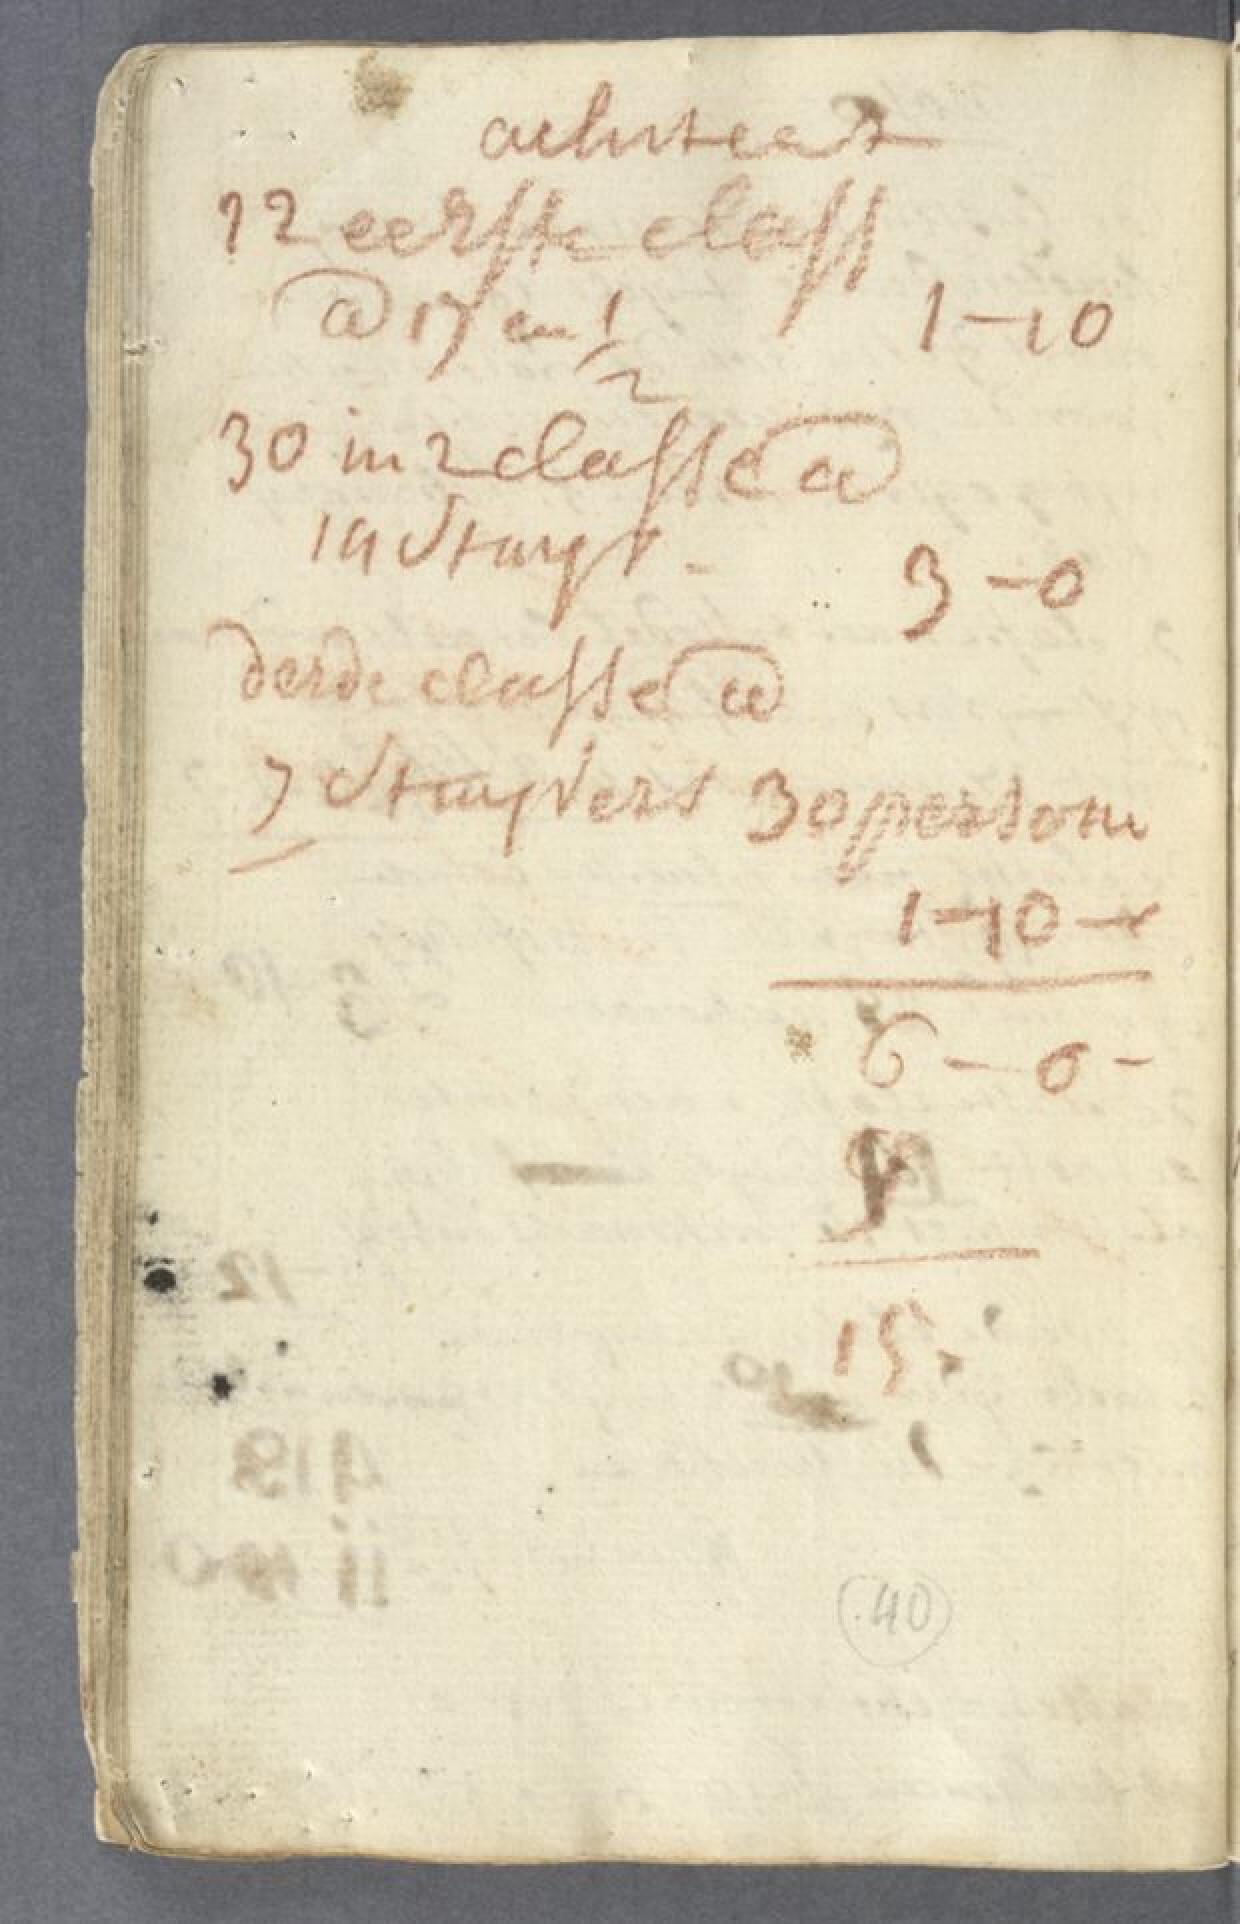 12 eerste class
@ 17 en 1/2 1-10
30 in 2 classe @
14 stuyv - 3-0
derde classe @
7 stuyvers 30 persone
1-10-
6-0-
9
15
40